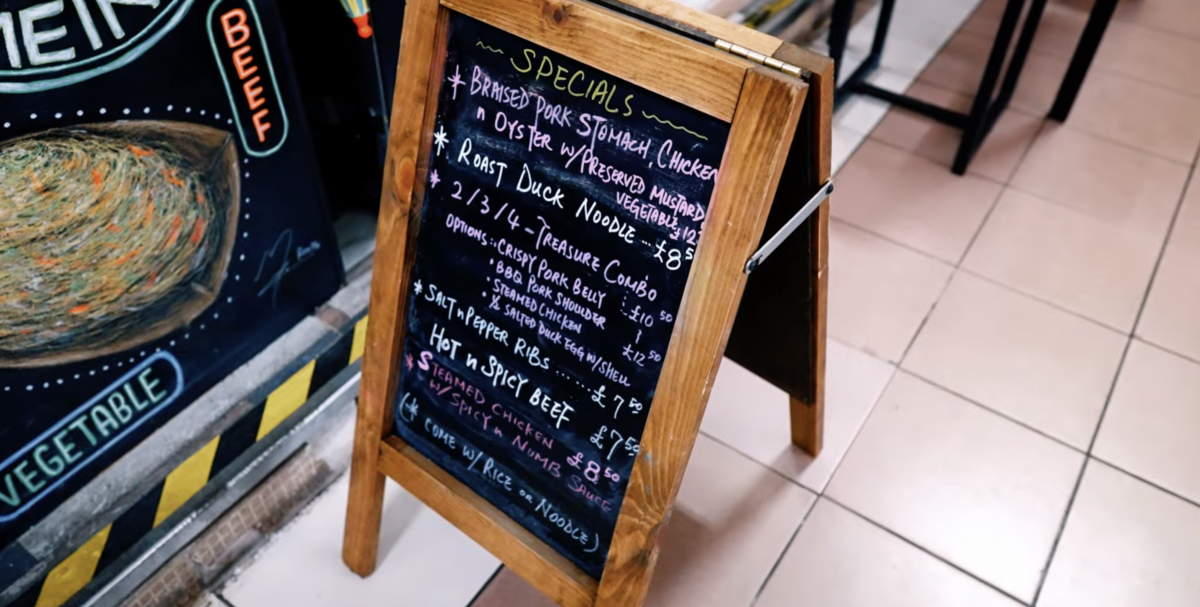 BEEF
VEGETABLE
SPECIALS
* BRAISED PORK STOMACH, CHICKEN
n OYSTER W/PRESERVED MUSTARD
VEGETABLE,
* ROAST DUCK NOODLE - £8
* 2/3/4 - TREASURE COMBO
OPTIONS: • CRISPY PORK BELLY £10 50
• BBQ PORK SHOULDER
• STEAMED CHICKEN £12 50
• ½ SALTED DUCK EGG W/SHELL
* SALT n PEPPER RIBS ...... £7 50
HOT n SPICY BEEF £7 50
* STEAMED CHICKEN £8 50
W/SPICY n NUMB SAUCE
(* COME W/ RICE OR NOODLE)